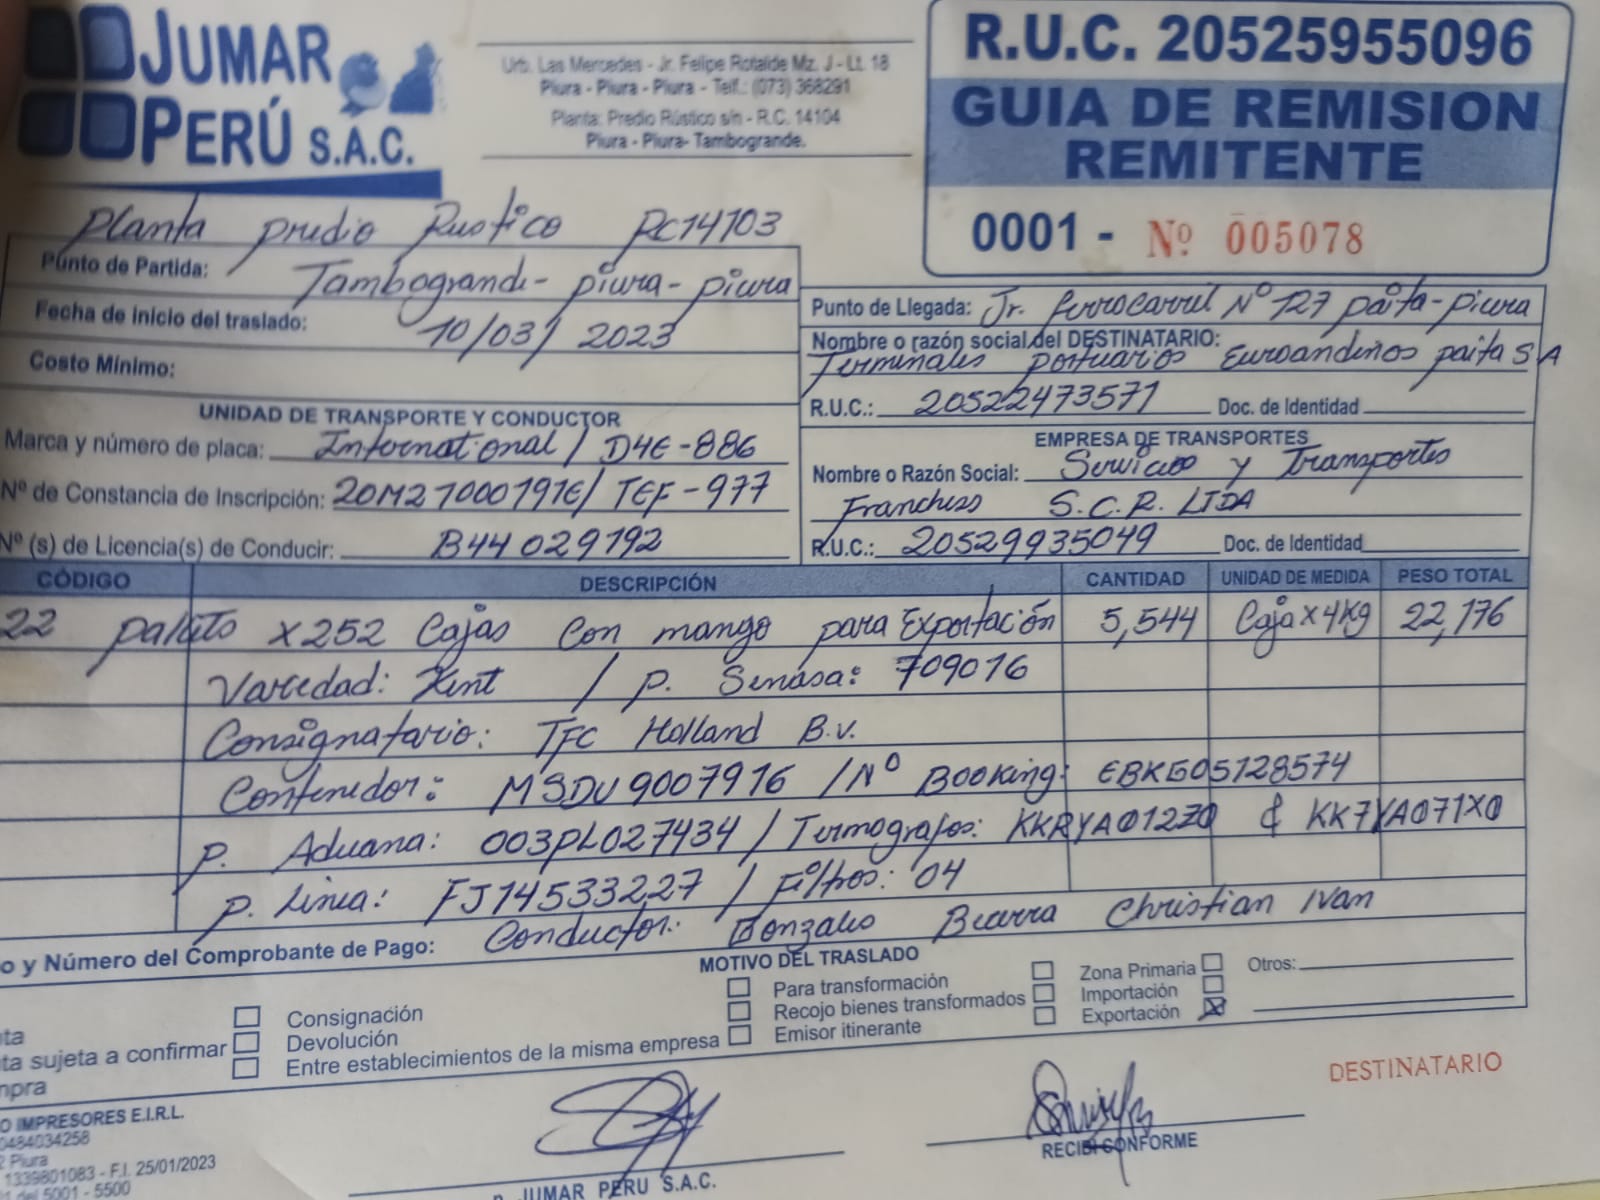 JUMAR
PERÚ S.A.C.
Urb. Las Mercedes - Jr. Felipe Rotalde Mz. J - Lt. 18
Piura - Piura - Piura - Telf.: (073) 368291
Planta: Predio Rústico s/n - R.C. 14104
Piura - Piura- Tambogrande.
R.U.C. 20525955096
GUIA DE REMISION
REMITENTE
0001 - Nº 005078
Planta predio Rustico RC14103
Punto de Partida: Tambogrande - piura - piura
Fecha de inicio del traslado: 10/03/2023
Costo Mínimo:
Punto de Llegada: Jr. Ferrocarril Nº 127 paita - piura
Nombre o razón social del DESTINATARIO:
Terminales portuarios Euroandinos paita S A
R.U.C.: 20522473571 Doc. de Identidad
UNIDAD DE TRANSPORTE Y CONDUCTOR
Marca y número de placa: International / D4E-886
Nº de Constancia de Inscripción: 20M21000191E/ TEF-977
Nº (s) de Licencia(s) de Conducir: B44029192
EMPRESA DE TRANSPORTES
Nombre o Razón Social: Servicios y Transportes
Franchess S.C.R. LTDA
R.U.C.: 20529935049 Doc. de Identidad
CÓDIGO DESCRIPCIÓN CANTIDAD UNIDAD DE MEDIDA PESO TOTAL
22 palets x252 Cajas Con mango para Exportación 5,544 Caja x 4Kg 22,176
Variedad: Kent / p. Senasa: 709016
Consignatario: TFC Holland B.V.
Contenedor: MSDU9007916 / Nº Booking: EBKG05128574
p. Aduana: 003PL027434 / Termografos: KKRYA01270 & KK7YA071X0
p. Linea: FJ14533227 / Filtros: 04
o y Número del Comprobante de Pago: Conductor: Gonzales Becerra Christian Ivan
MOTIVO DEL TRASLADO
Consignación
Devolución
Entre establecimientos de la misma empresa
Para transformación
Recojo bienes transformados
Emisor itinerante
Zona Primaria
Importación
Exportación X
Otros:
ta
ta sujeta a confirmar
mpra
O IMPRESORES E.I.R.L.
0484034258
2 Piura
1339801083 - F.I. 25/01/2023
del 5001 - 5500
JUMAR PERU S.A.C.
RECIBI CONFORME
DESTINATARIO